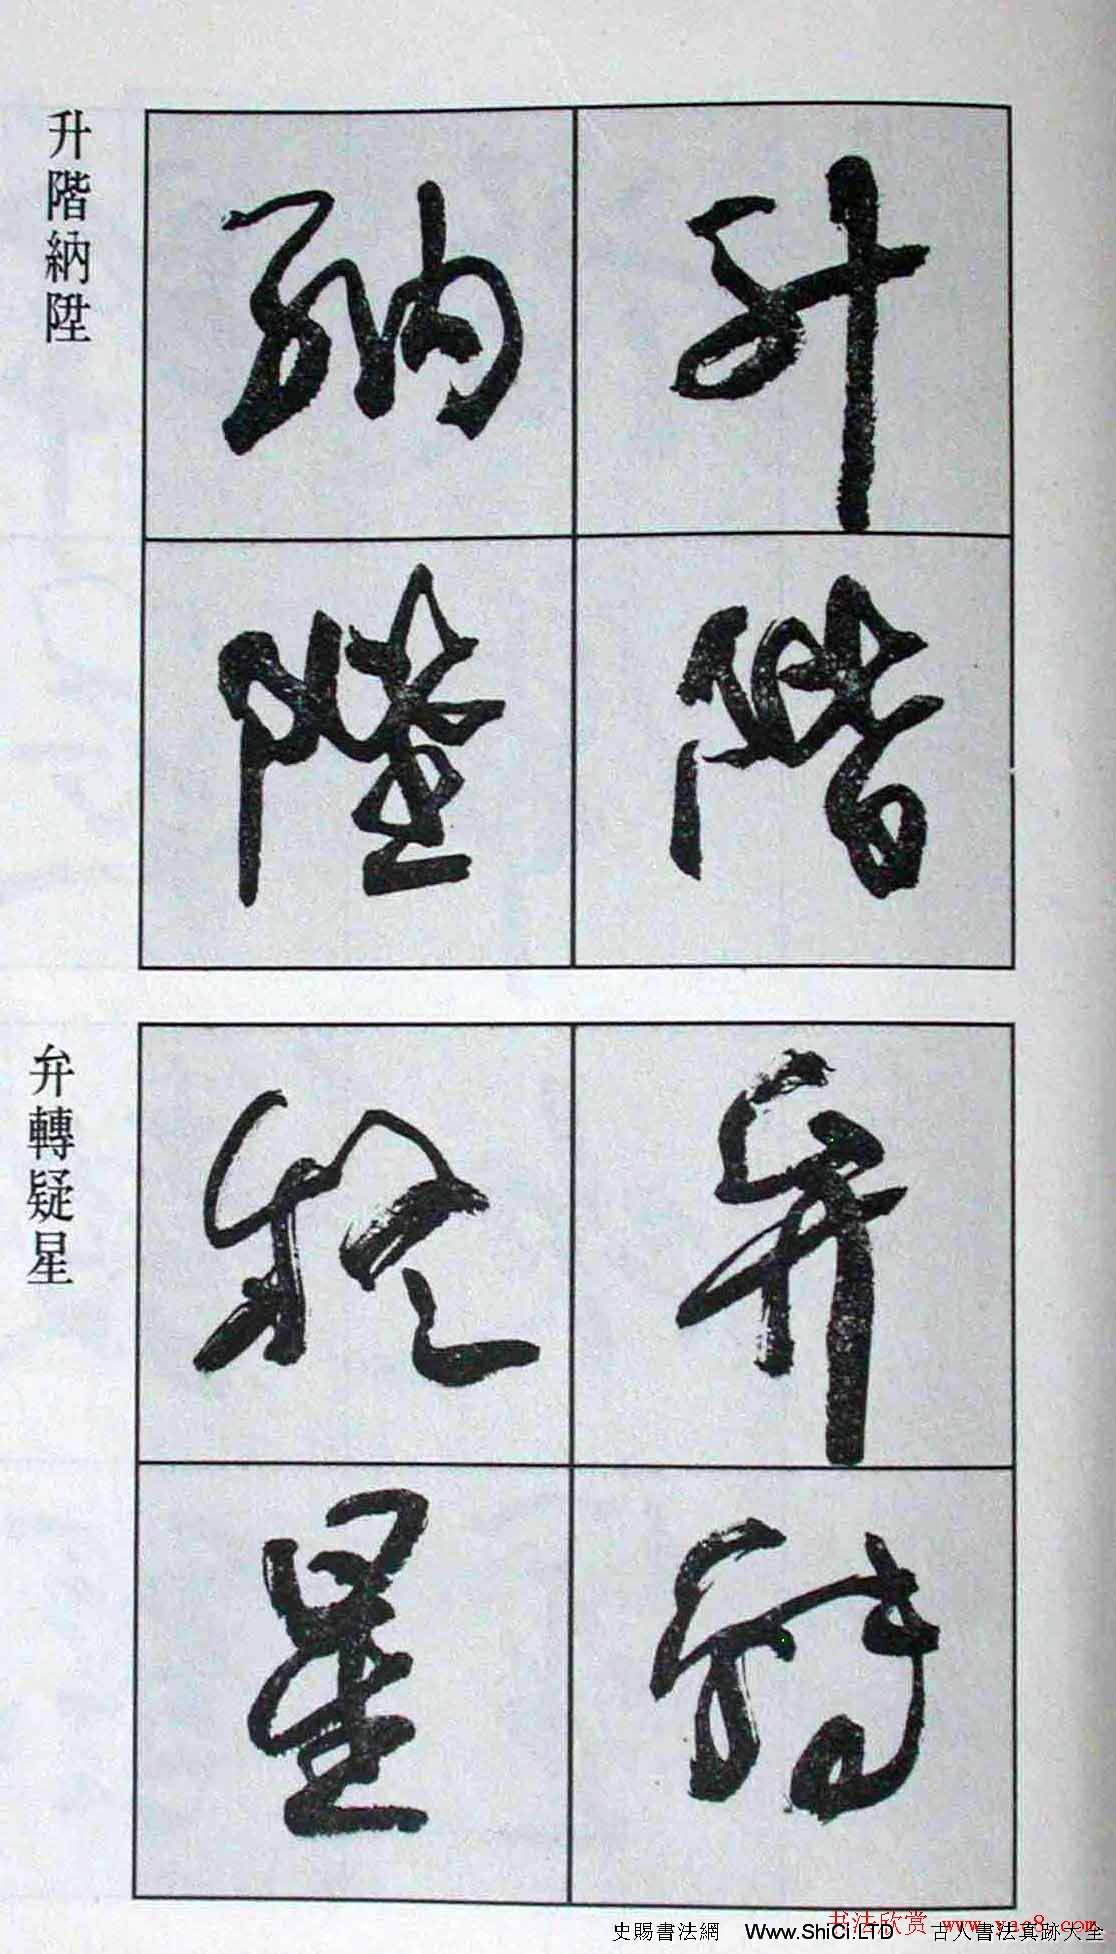 升階
納陛
升階納陞
弁轉
疑星
弁轉疑星
书法欣赏 www.yac8.com
史賜書法網 Www.ShiCi.LTD 古人書法真跡大全